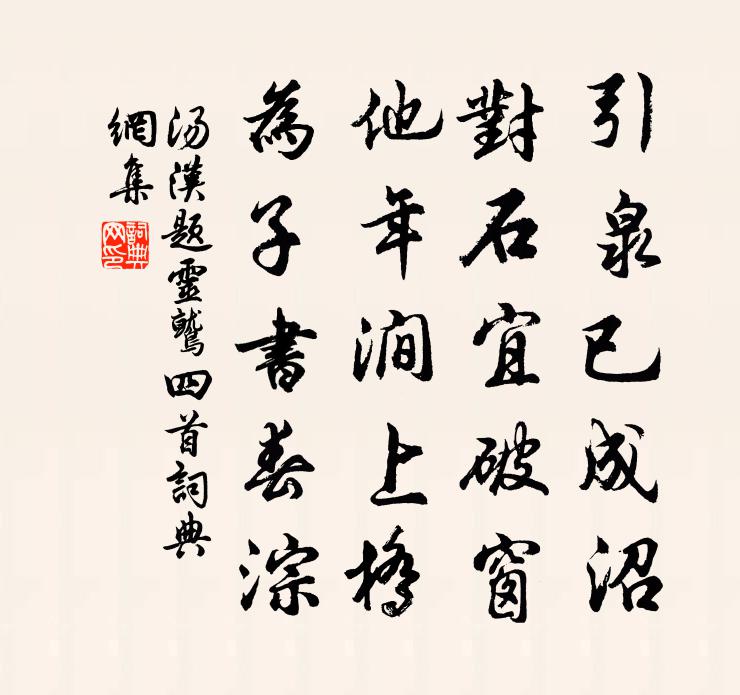 引泉已成沼
對石宜破窗
他年澗上橋
為子書春淙
湯漢題靈鷲四首詞典
網集
詞典
网印